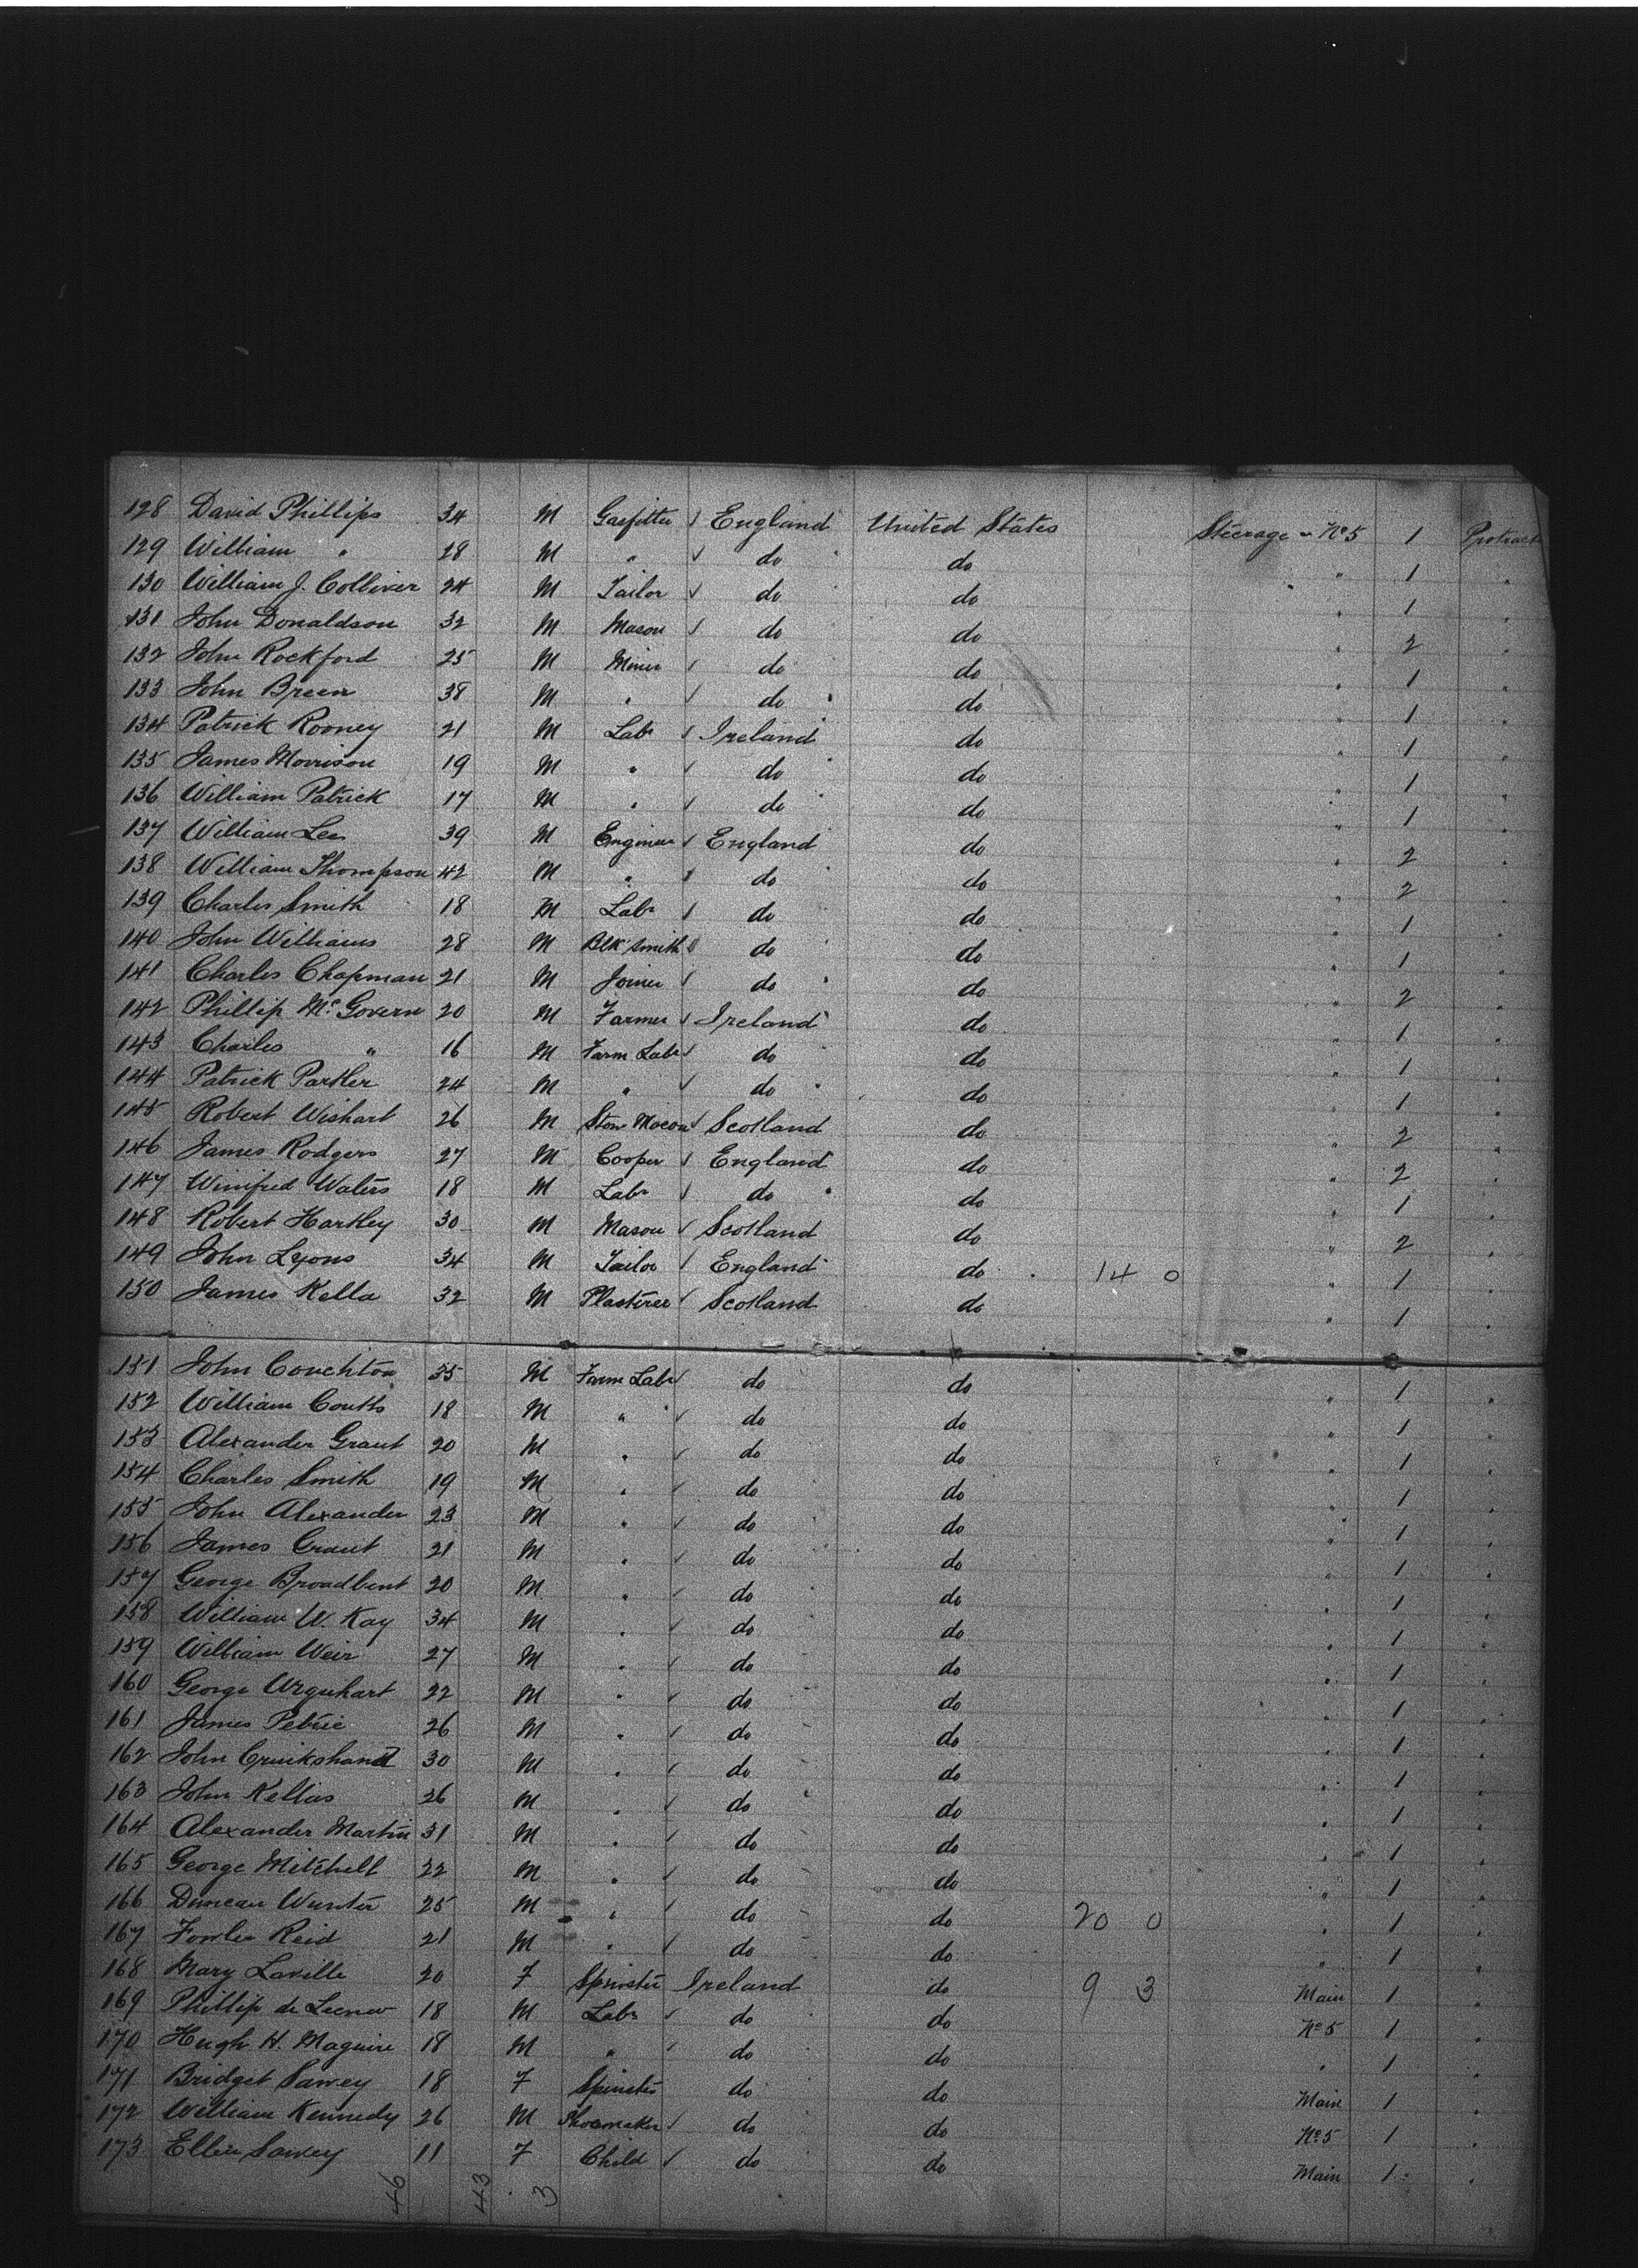 128 David Phillips 34 M Gasfitter England United States Steerage - No 5 1 Protract
129 William " 28 M " do do " 1 "
130 William J. Colliver 24 M Tailor do do " 1 "
131 John Donaldson 32 M Mason do do " 2 "
132 John Rockford 25 M Miner do do " 1 "
133 John Breen 38 M " do do " 1 "
134 Patrick Rooney 21 M Labr Ireland do " 1 "
135 James Morrison 19 M " do do " 1 "
136 William Patrick 17 M " do do " 1 "
137 William Lee 39 M Engineer England do " 2 "
138 William Thompson 42 M " do do " 2 "
139 Charles Smith 18 M Labr do do " 1 "
140 John Williams 28 M Blk smith do do " 1 "
141 Charles Chapman 21 M Joiner do do " 2 "
142 Phillip McGovern 20 M Farmer Ireland do " 1 "
143 Charles " 16 M Farm Labr do do " 1 "
144 Patrick Partler 24 M " do do " 1 "
145 Robert Wishart 26 M Stone Mason Scotland do " 2 "
146 James Rodgers 27 M Cooper England do " 2 "
147 Winifred Waters 18 M Labr do do " 1 "
148 Robert Hartley 30 M Mason Scotland do " 2 "
149 John Lyons 34 M Tailor England do 14 0 " 1 "
150 James Kella 32 M Plasterer Scotland do " 1 "
151 John Couchton 35 M Farm Labr do do " 1 "
152 William Coutts 18 M " do do " 1 "
153 Alexander Grant 20 M " do do " 1 "
154 Charles Smith 19 M " do do " 1 "
155 John Alexander 23 M " do do " 1 "
156 James Grant 21 M " do do " 1 "
157 George Broadbent 20 M " do do " 1 "
158 William W. Kay 34 M " do do " 1 "
159 William Weir 27 M " do do " 1 "
160 George Urquhart 22 M " do do " 1 "
161 James Petrie 26 M " do do " 1 "
162 John Cruikshank 30 M " do do " 1 "
163 John Kellas 26 M " do do " 1 "
164 Alexander Martin 31 M " do do " 1 "
165 George Mitchell 22 M " do do " 1 "
166 Duncan Wunter 25 M " do do 20 0 " 1 "
167 Fowler Reid 21 M " do do " 1 "
168 Mary Laville 20 F Spinster Ireland do 9 3 Main 1 "
169 Phillip de 18 M Labr do do No 5 1 "
170 Hugh H. Maguire 18 M " do do " 1 "
171 Bridget Sawey 18 F Spinster do do Main 1 "
172 William Kennedy 26 M Shoemaker do do No 5 1 "
173 Ellen Sawey 11 F Child do do Main 1 "
46 43 3